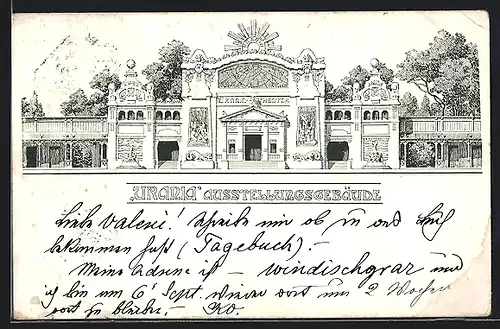 URANIA THEATER
"URANIA" AUSSTELLUNGSGEBÄUDE
Liebe Valerie! Schreibe mir ob du das
bekommen hast (Tagebuch). –
Meine Adresse ist – Windischgraz und
ich bin am 6' Sept. wieder dort um 2 Wochen
dort zu bleiben. –